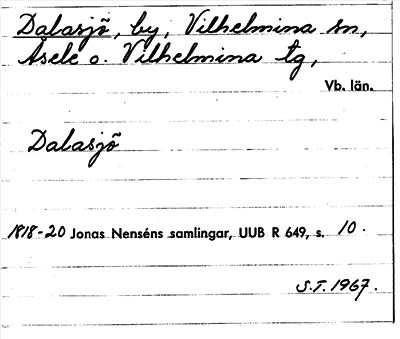 Dalasjö, by, Vilhelmina sn,
Åsele o. Vilhelmina tg,
Vb. län.
Dalasjö
1818-20 Jonas Nenséns samlingar, UUB R 649, s. 10.
S.T. 1967.